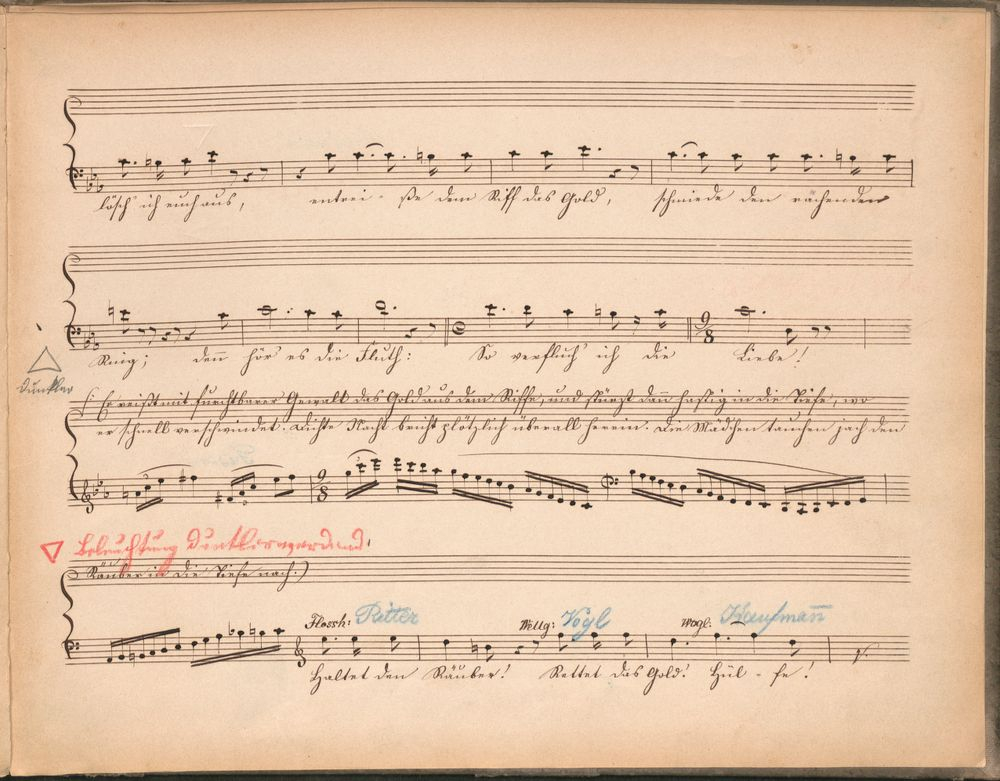 lösch' ich euch aus, entrei - ße dem Riff das Gold, schmiede den rächenden
Ring; deñ hör' es die Fluth: So verfluch' ich die Liebe!
9/8
dunkler
(: Er reißt mit furchtbarer Gewalt das Gold aus dem Riffe, und stürzt dañ hastig in die Tiefe, wo
er schnell verschwindet. Dichte Nacht bricht plötzlich überall herein. Die Mädchen tauchen jach den
9/8
Beleuchtung dunkler werdend.
Räuber in die Tiefe nach:)
Flossh: Ritter Wellg: Vogl Wogl: Kaufmañ
Haltet den Räuber! Rettet das Gold! Hül - fe!